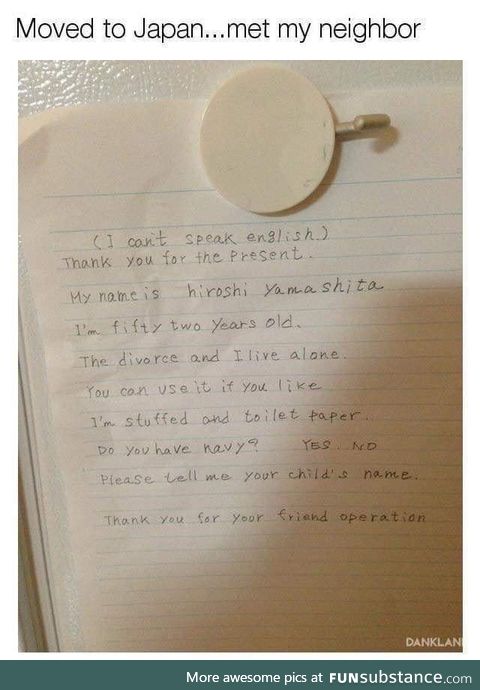 Moved to Japan...met my neighbor
(I can't speak english.)
Thank you for the Present.
My name is hiroshi Yamashita
I'm fifty two years old.
The divorce and I live alone.
You can use it if you like
I'm stuffed and toilet paper.
Do you have navy? YES. NO
Please tell me your child's name.
Thank you for your friend operation
DANKLAN
More awesome pics at FUNsubstance.com